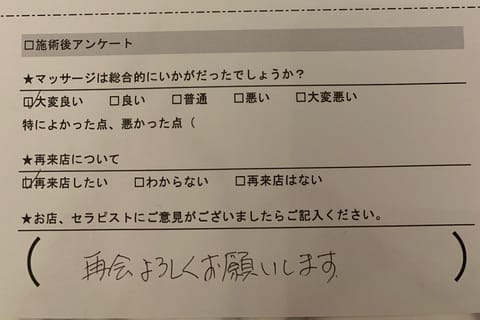 □施術後アンケート
★マッサージは総合的にいかがだったでしょうか？
☑大変良い □良い □普通 □悪い □大変悪い
特によかった点、悪かった点（
★再来店について
☑再来店したい □わからない □再来店はない
★お店、セラピストにご意見がございましたらご記入ください。
（再会よろしくお願いします）